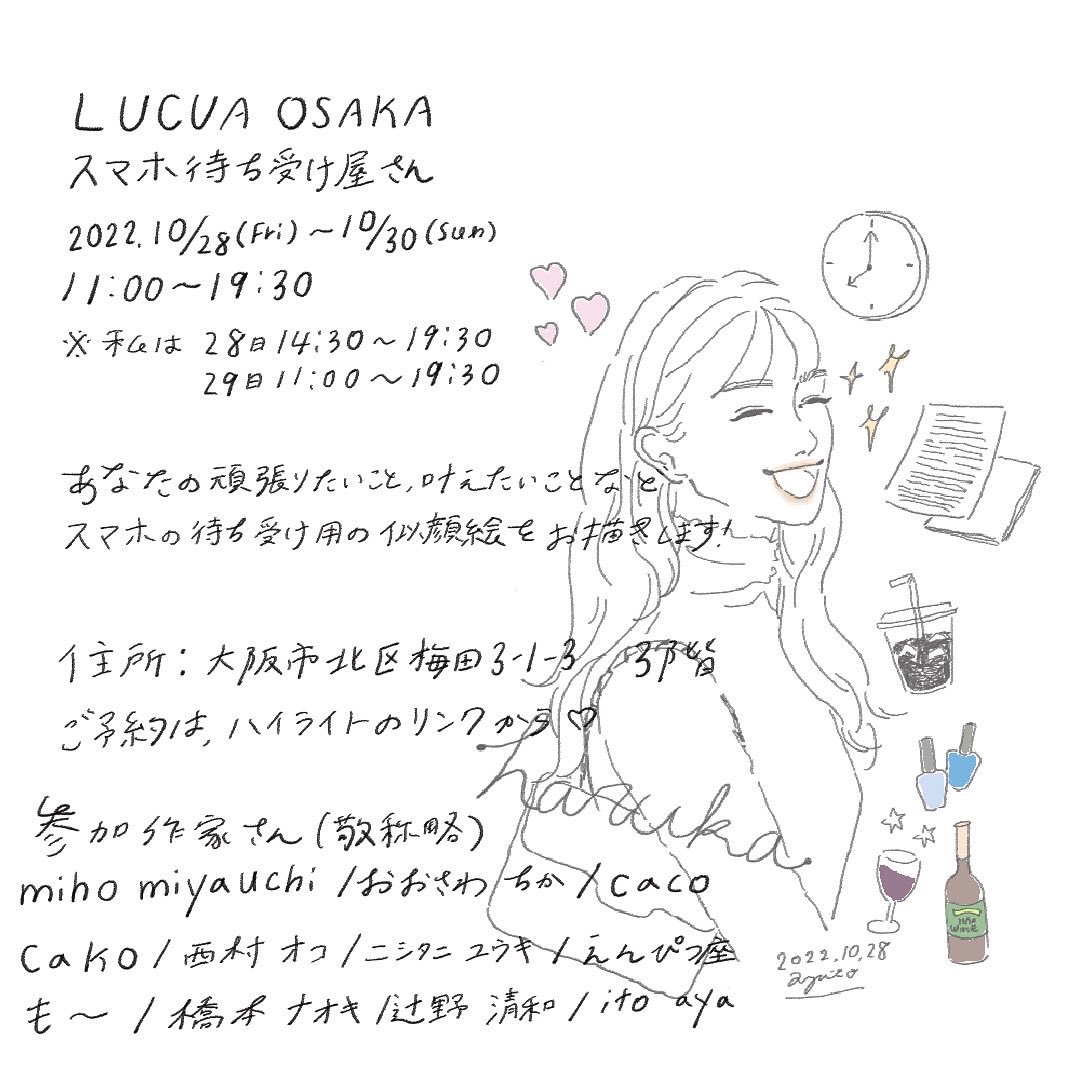 LUCUA OSAKA
スマホ待ち受け屋さん
2022.10/28(Fri)～10/30(Sun)
11:00～19:30
※私は 28日14:30～19:30
29日11:00～19:30
あなたの頑張りたいこと,叶えたいことなど
スマホの待ち受け用の似顔絵をお描きします!
住所:大阪市北区梅田3-1-3 3階
ご予約は,ハイライトのリンクから♡
haruka.
参加作家さん(敬称略)
miho miyauchi/おおさわ ちか/caco
cako/西村 オコ/ニシタニ ユウキ/えんぴつ座
も～/橋本 ナオキ/辻野 清和/ito aya
WINE
2022.10.28